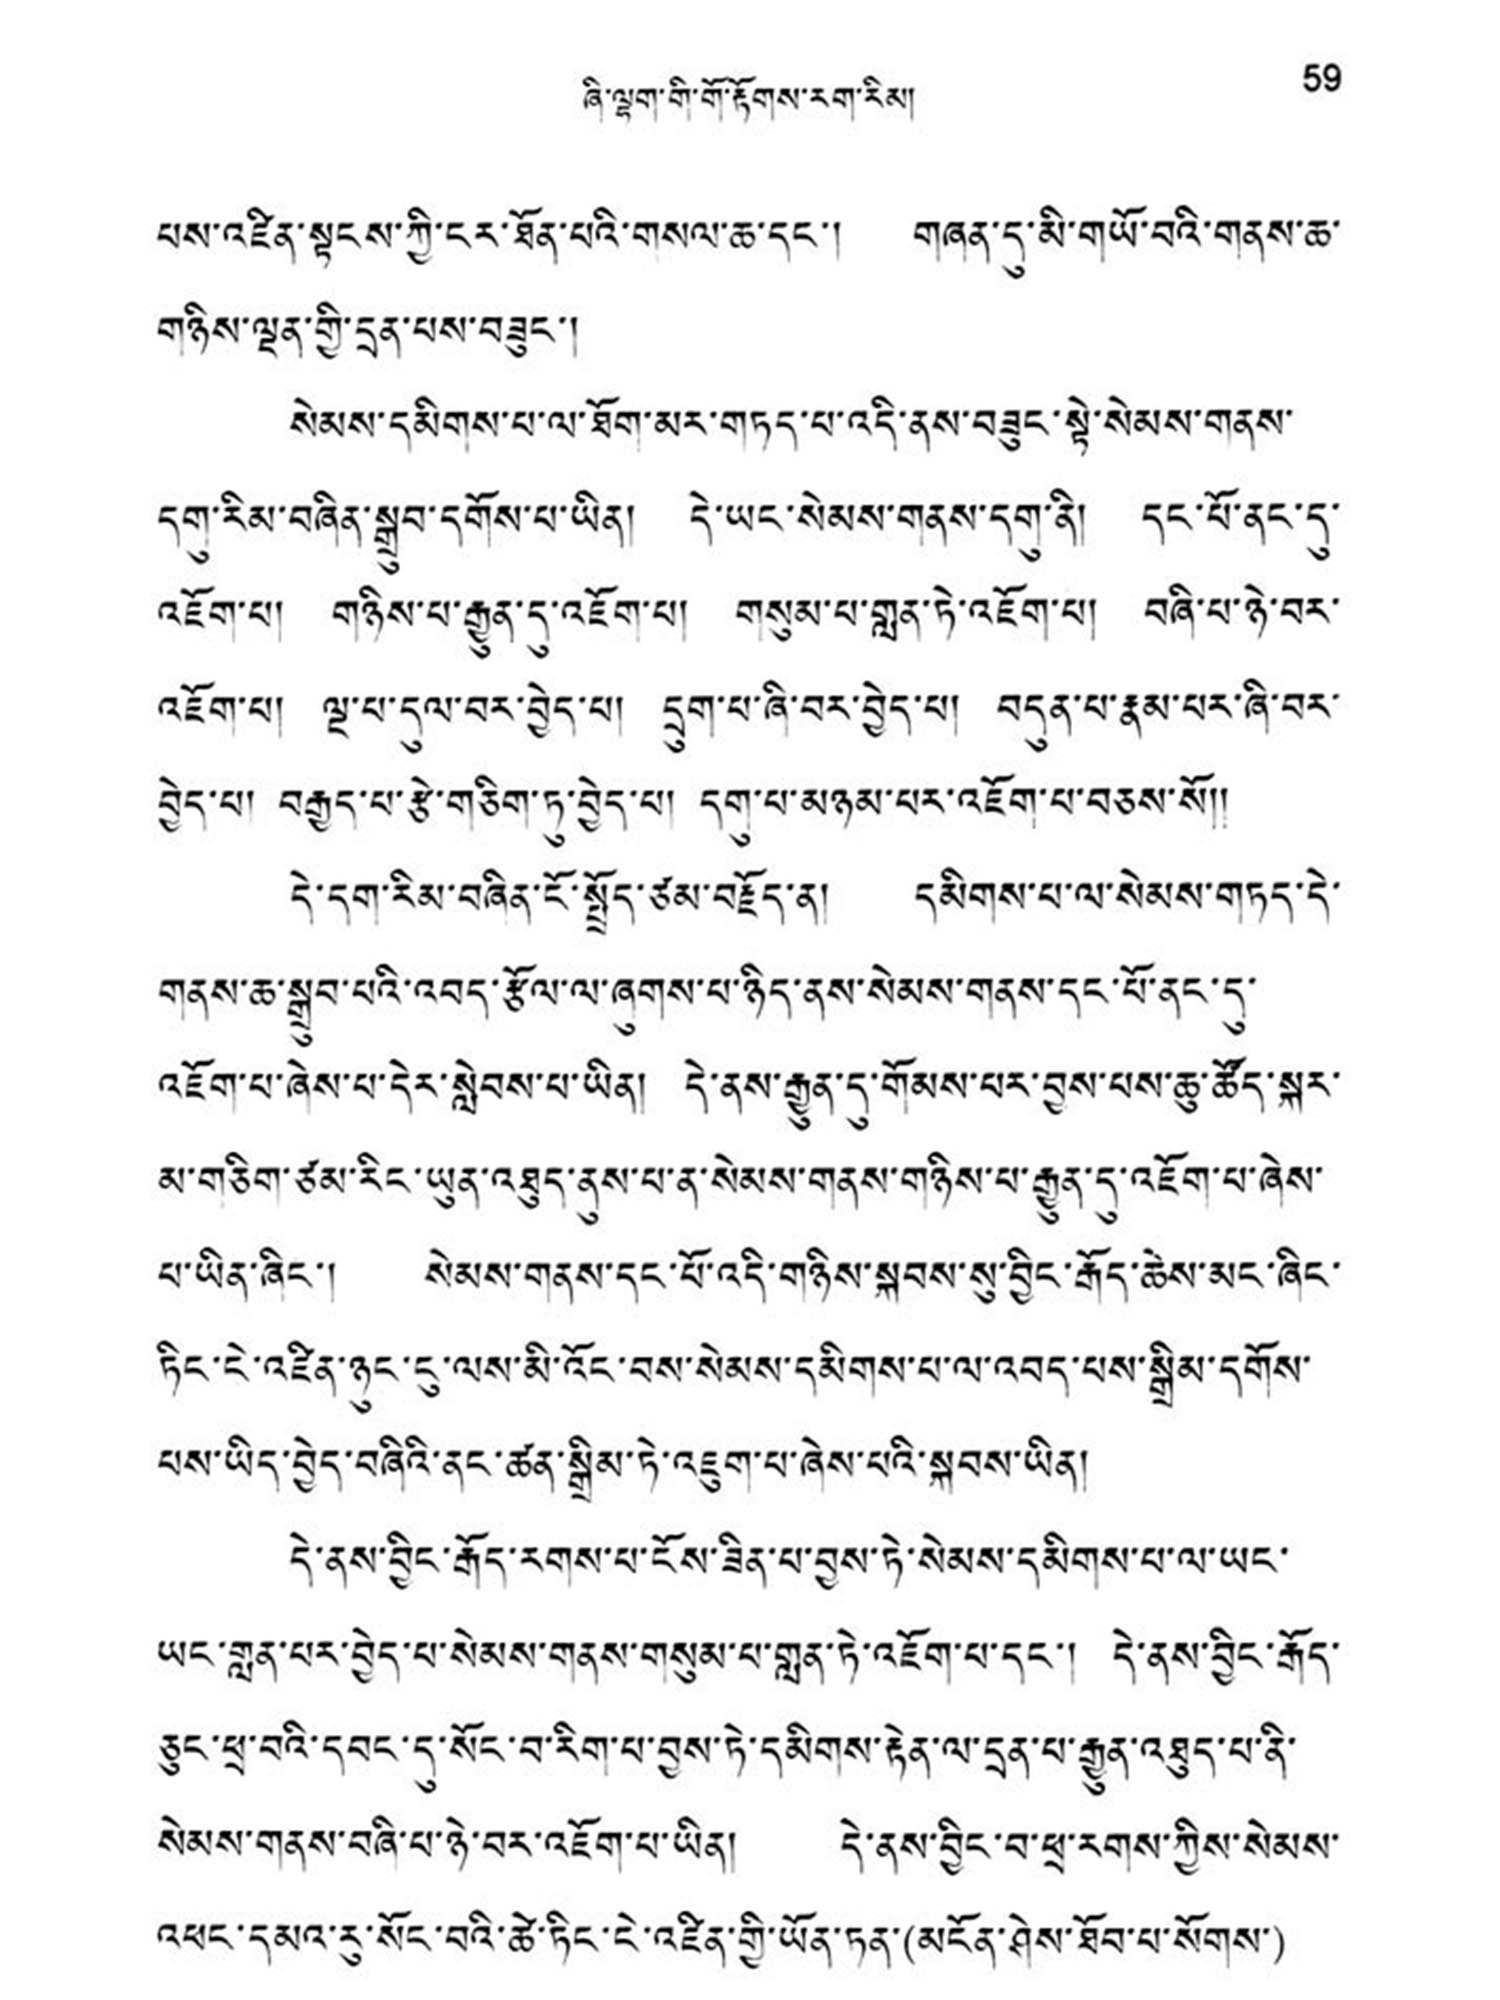 59
ཞི་ལྷག་གི་གོ་རྟོགས་རག་རིམ།
པས་འཛིན་སྟངས་ཀྱི་ངར་ཐོན་པའི་གསལ་ཆ་དང་། གཞན་དུ་མི་གཡོ་བའི་གནས་ཆ་
གཉིས་ལྡན་གྱི་དྲན་པས་བཟུང་།
སེམས་དམིགས་པ་ལ་ཐོག་མར་གཏད་པ་འདི་ནས་བཟུང་སྟེ་སེམས་གནས་
དགུ་རིམ་བཞིན་སྒྲུབ་དགོས་པ་ཡིན། དེ་ཡང་སེམས་གནས་དགུ་ནི། དང་པོ་ནང་དུ་
འཇོག་པ། གཉིས་པ་རྒྱུན་དུ་འཇོག་པ། གསུམ་པ་གླན་ཏེ་འཇོག་པ། བཞི་པ་ཉེ་བར་
འཇོག་པ། ལྔ་པ་དུལ་བར་བྱེད་པ། དྲུག་པ་ཞི་བར་བྱེད་པ། བདུན་པ་རྣམ་པར་ཞི་བར་
བྱེད་པ། བརྒྱད་པ་རྩེ་གཅིག་ཏུ་བྱེད་པ། དགུ་པ་མཉམ་པར་འཇོག་པ་བཅས་སོ།།
དེ་དག་རིམ་བཞིན་ངོ་སྤྲོད་ཙམ་བརྗོད་ན། དམིགས་པ་ལ་སེམས་གཏད་དེ་
གནས་ཆ་སྒྲུབ་པའི་འབད་རྩོལ་ལ་ཞུགས་པ་ཉིད་ནས་སེམས་གནས་དང་པོ་ནང་དུ་
འཇོག་པ་ཞེས་པ་དེར་སླེབས་པ་ཡིན། དེ་ནས་རྒྱུན་དུ་གོམས་པར་བྱས་པས་ཆུ་ཚོད་སྐར་
མ་གཅིག་ཙམ་རིང་ཡུན་འཐུད་ནུས་པ་ན་སེམས་གནས་གཉིས་པ་རྒྱུན་དུ་འཇོག་པ་ཞེས་
པ་ཡིན་ཞིང་། སེམས་གནས་དང་པོ་འདི་གཉིས་སྐབས་སུ་བྱིང་རྒོད་ཆེས་མང་ཞིང་
ཏིང་ངེ་འཛིན་ཉུང་ངུ་ལས་མི་འོང་བས་སེམས་དམིགས་པ་ལ་འབད་པས་སྒྲིམ་དགོས་
པས་ཡིད་བྱེད་བཞིའི་ནང་ཚན་སྒྲིམ་ཏེ་འཇུག་པ་ཞེས་པའི་སྐབས་ཡིན།
དེ་ནས་བྱིང་རྒོད་རགས་པ་ངོས་ཟིན་པ་བྱས་ཏེ་སེམས་དམིགས་པ་ལ་ཡང་
ཡང་གླན་པར་བྱེད་པ་སེམས་གནས་གསུམ་པ་གླན་ཏེ་འཇོག་པ་དང་། དེ་ནས་བྱིང་རྒོད་
ཅུང་ཕྲ་བའི་དབང་དུ་སོང་བ་རིག་པ་བྱས་ཏེ་དམིགས་རྟེན་ལ་དྲན་པ་རྒྱུན་འཐུད་པ་ནི་
སེམས་གནས་བཞི་པ་ཉེ་བར་འཇོག་པ་ཡིན། དེ་ནས་བྱིང་བ་ཕྲ་རགས་ཀྱིས་སེམས་
འཕང་དམའ་རུ་སོང་བའི་ཚེ་ཏིང་ངེ་འཛིན་གྱི་ཡོན་ཏན་(མངོན་ཤེས་ཐོབ་པ་སོགས་)